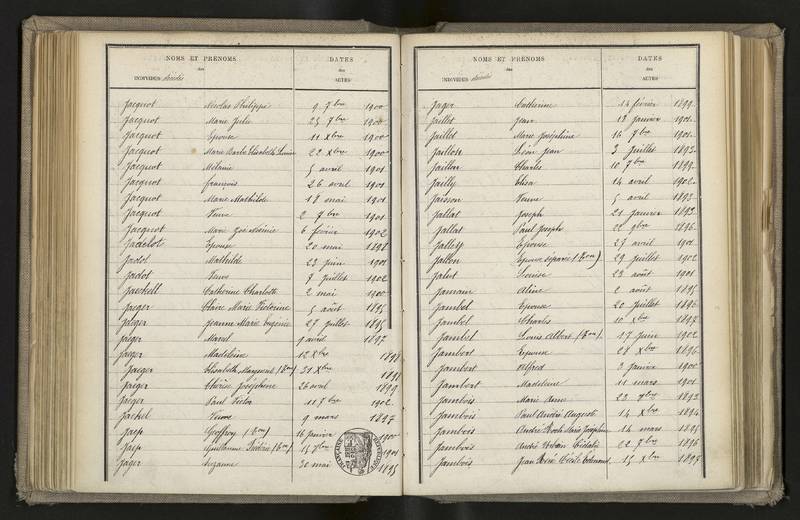 NOMS ET PRÉNOMS DATES
des des
INDIVIDUS décédés ACTES
Jacquot Nicolas Philippe 9 7bre 1900
Jacquot Marie Julie 25 7bre 1900
Jacquot Epouse 11 Xbre 1900
Jacquot Marie Barbe Elisabeth Louise 22 Xbre 1900
Jacquot Mélanie 5 avril 1901
Jacquot françois 26 avril 1901
Jacquot Marie Mathilde 18 mai 1901
Jacquot Veuve 2 7bre 1901
Jacquot Marie 6 février 1902
Jadelot Epouse 20 mai 1898
Jadot Mathilde 23 juin 1901
Jadot Veuve 7 juillet 1902
Jaeckell Catherine Charlotte 2 mai 1900
Jaeger Claire Marie Victorine 5 août 1895
Jaeger Jeanne Marie Eugénie 27 juillet 1895
Jaeger Marcel 9 avril 1897
Jaeger Madeleine 12 Xbre 1898
Jaeger Elisabeth Marguerite 31 Xbre 1898
Jaeger Thérèse Joséphine 26 avril 1899
Jaeger Paul Victor 11 7bre 1902
Jaehel Veuve 9 mars 1897
Jaep Geoffroy 16 janvier 1900
Jaep Guillaume Frédéric 15 7bre 1901
Jager Suzanne 30 mai 1895
NOMS ET PRÉNOMS DATES
des des
INDIVIDUS décédés ACTES
Jager Catherine 14 février 1899
Jaillet Jean 18 janvier 1901
Jaillet Marie Joséphine 16 7bre 1901
Jaillon Léon Jean 3 juillet 1893
Jaillon Charles 10 7bre 1899
Jailly Elisa 14 avril 1902
Jaisson Veuve 5 avril 1893
Jallat Joseph 21 janvier 1893
Jallat Paul Joseph 22 9bre 1896
Jalley Epouse 27 avril 1901
Jallon Epouse séparée 29 juillet 1902
Jalut Louise 23 août 1901
Jamain Aline 2 août 1895
Jambel Epouse 20 juillet 1896
Jambel Charles 10 Xbre 1897
Jambel Louis Albert 17 juin 1902
Jambert Epouse 28 Xbre 1896
Jambert Alfred 3 janvier 1900
Jambert Madeleine 11 mars 1901
Jambois Marie Anne 23 9bre 1893
Jambois Paul André Auguste 14 Xbre 1894
Jambois André Marie Joséphine 14 mars 1895
Jambois André Urbain 22 7bre 1896
Jambois Jean René Cécile Edmond 15 Xbre 1897